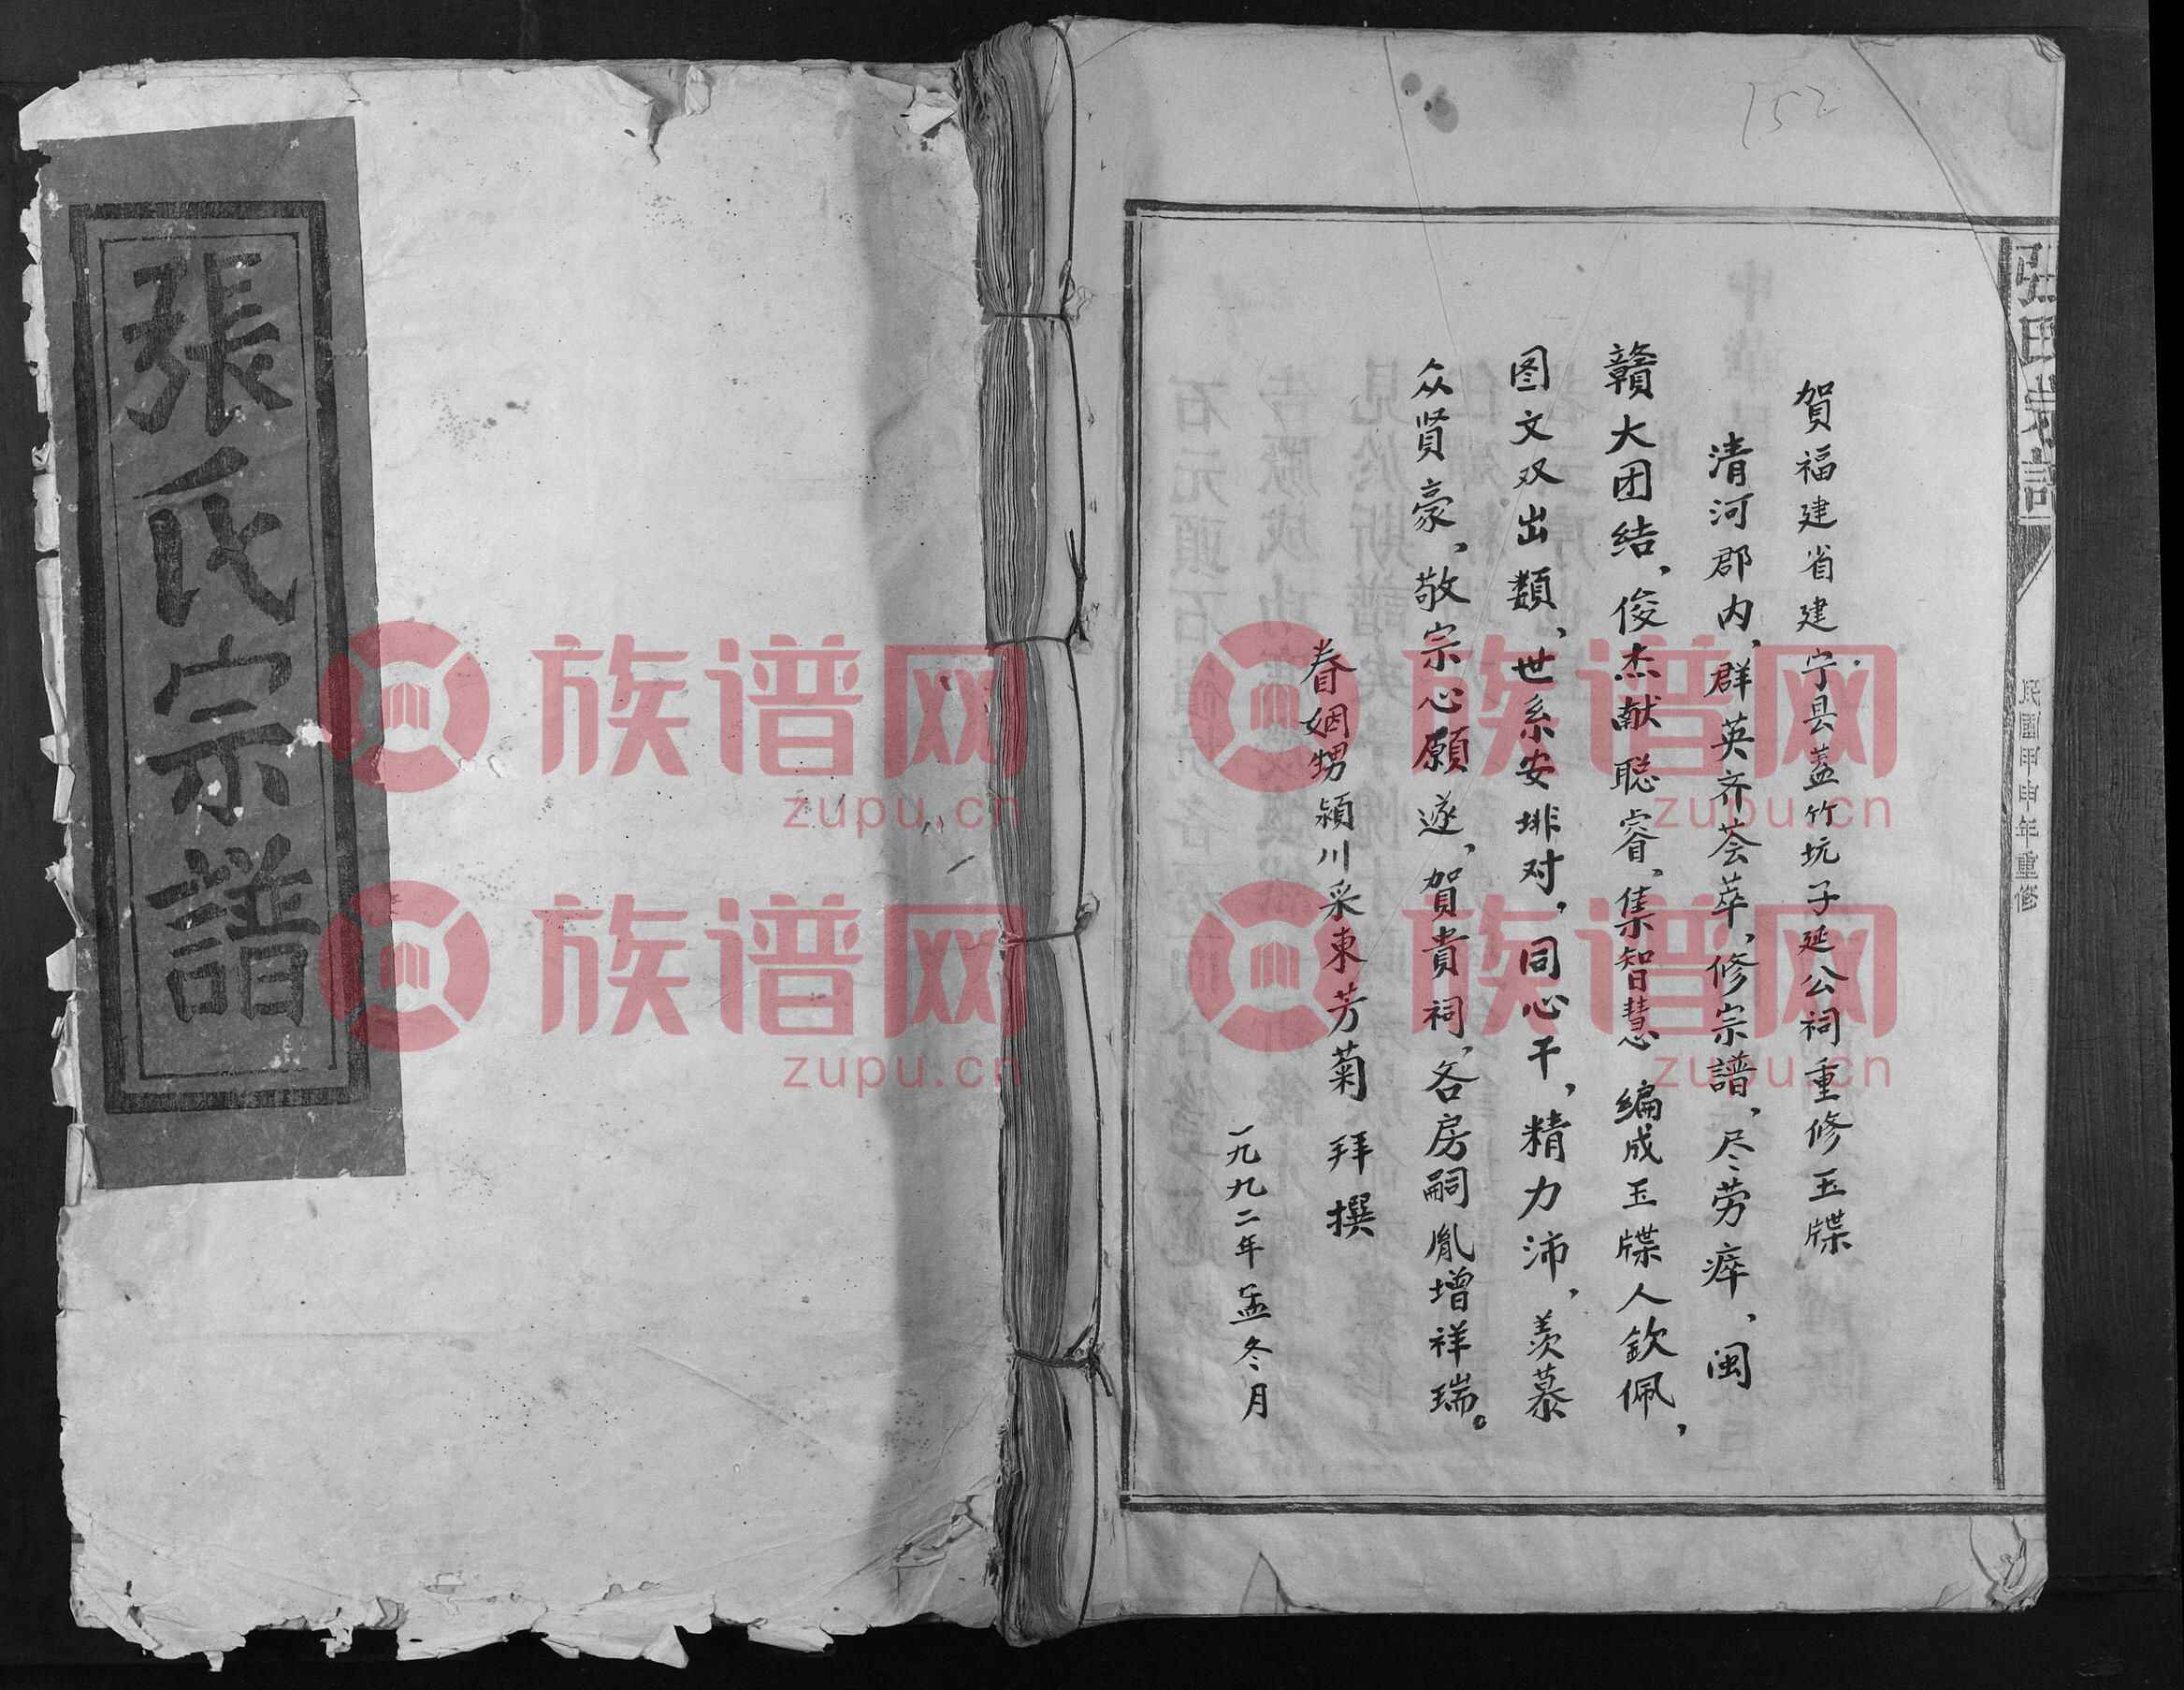 張氏宗譜
152
張氏宗譜
民國甲申年重修
賀福建省建宁县蓋竹坑子延公祠重修玉牒
清河郡内,群英齐荟萃,修宗譜,尽劳瘁,闽
贛大团结,俊杰献聪睿,集智慧 编成玉牒人欽佩,
图文双出類,世系安排对,同心干,精力沛,羡慕
众贤豪,敬宗心願遂,賀貴祠,各房嗣胤增祥瑞。
眷姻甥颍川采東芳菊 拜撰
一九九二年孟冬月
族谱网
zupu.cn
族谱网
zupu.cn
族谱网
zupu.cn
族谱网
zupu.cn